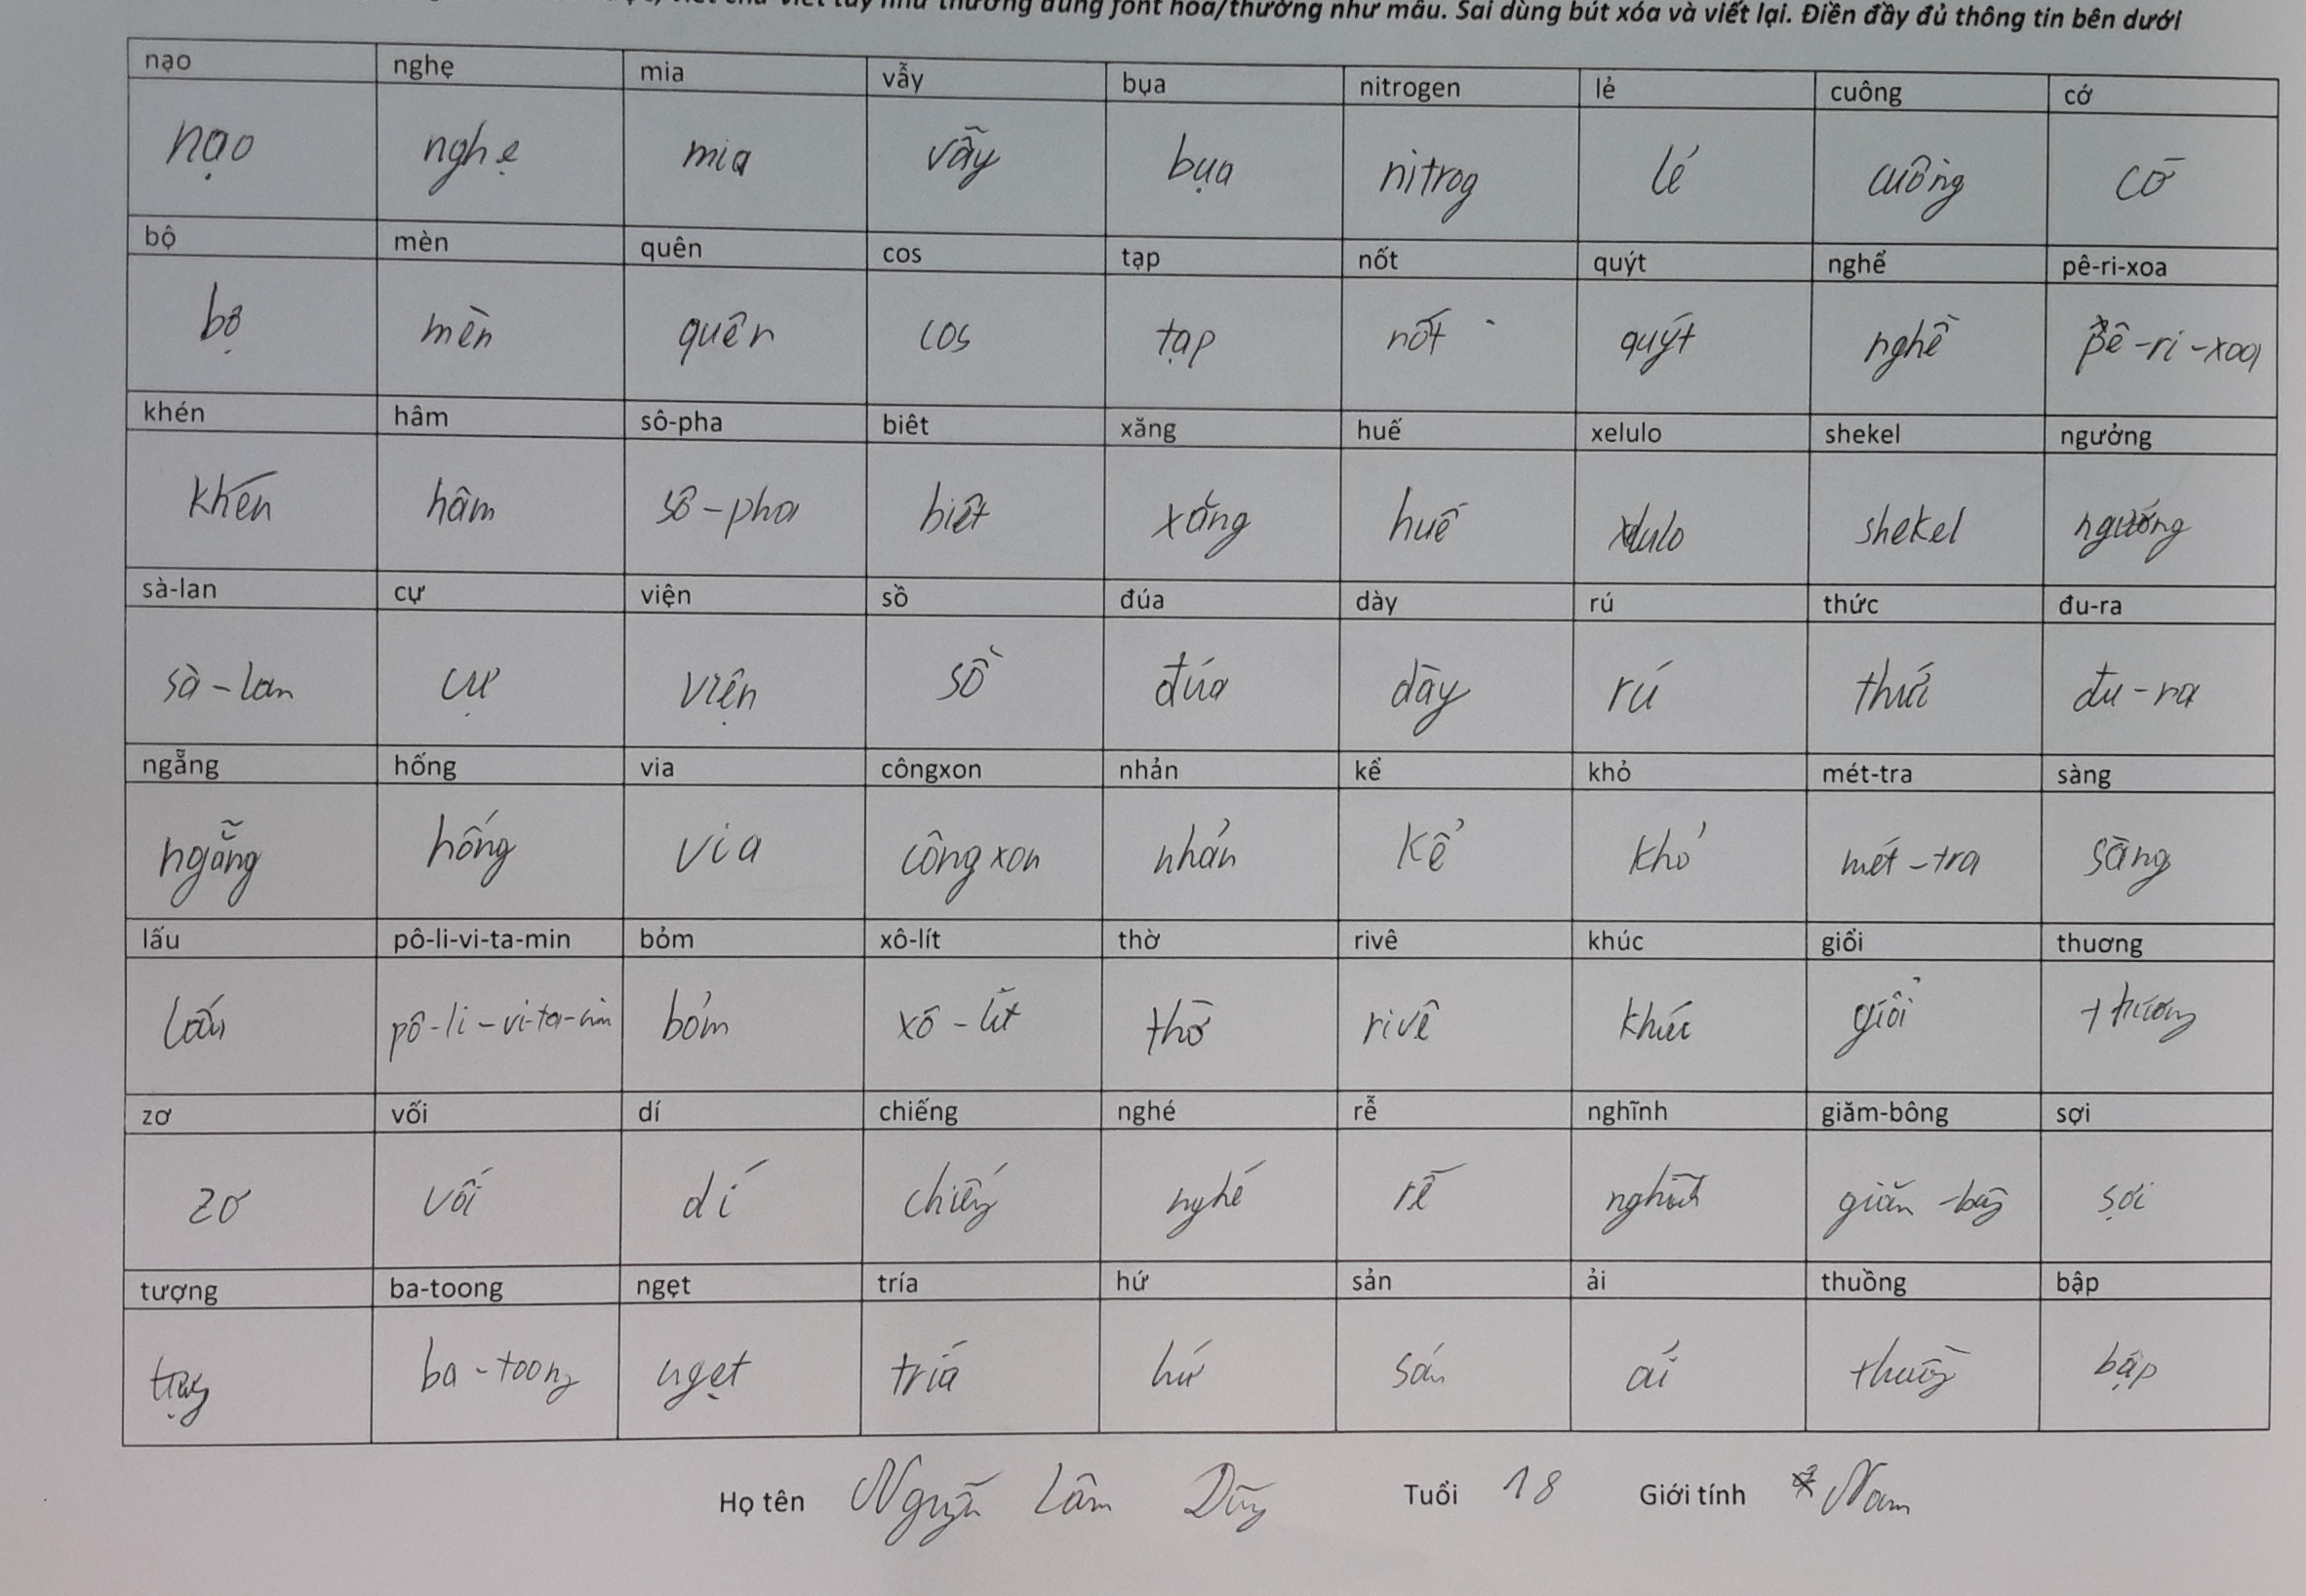 viết chữ viết tay như thường dùng font hoa/thường như mẫu. Sai dùng bút xóa và viết lại. Điền đầy đủ thông tin bên dưới
nạo nghẹ mia vẫy bụa nitrogen lẻ cuông cớ
nạo nghẹ mia vẫy bụa nitrog lẻ cuông cớ
bộ mèn quên cos tạp nốt quýt nghể pê-ri-xoa
bộ mèn quên cos tạp nốt quýt nghể pê-ri-xoa
khén hâm sô-pha biêt xăng huế xelulo shekel ngưởng
khén hâm sô-pha biêt xăng huế xelulo shekel ngưởng
sà-lan cự viện sồ đúa dày rú thức đu-ra
sà-lan cự viện sồ đúa dày rú thức đu-ra
ngẵng hống via côngxon nhản kể khỏ mét-tra sàng
ngẵng hống via côngxon nhản kể khỏ mét-tra sàng
lấu pô-li-vi-ta-min bỏm xô-lít thờ rivê khúc giổi thuơng
lấu pô-li-vi-ta-min bỏm xô-lít thờ rivê khúc giổi
zơ vối dí chiếng nghé rễ nghĩnh giăm-bông sợi
zơ vối dí chiếng nghé rễ nghĩnh giăm-bông sợi
tượng ba-toong ngẹt tría hứ sản ải thuồng bập
tượng ba-toong ngẹt tría hứ sản ải thuồng bập
Họ tên Nguyễn Lâm Dũng Tuổi 18 Giới tính Nam